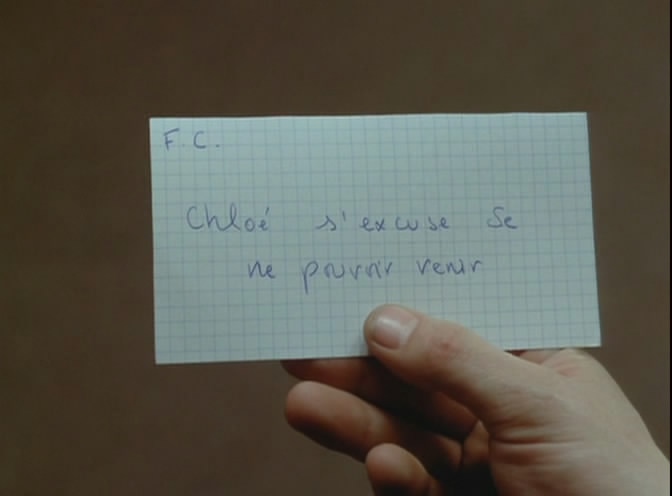 F.C.
Chloé s'excuse de
ne pouvoir venir